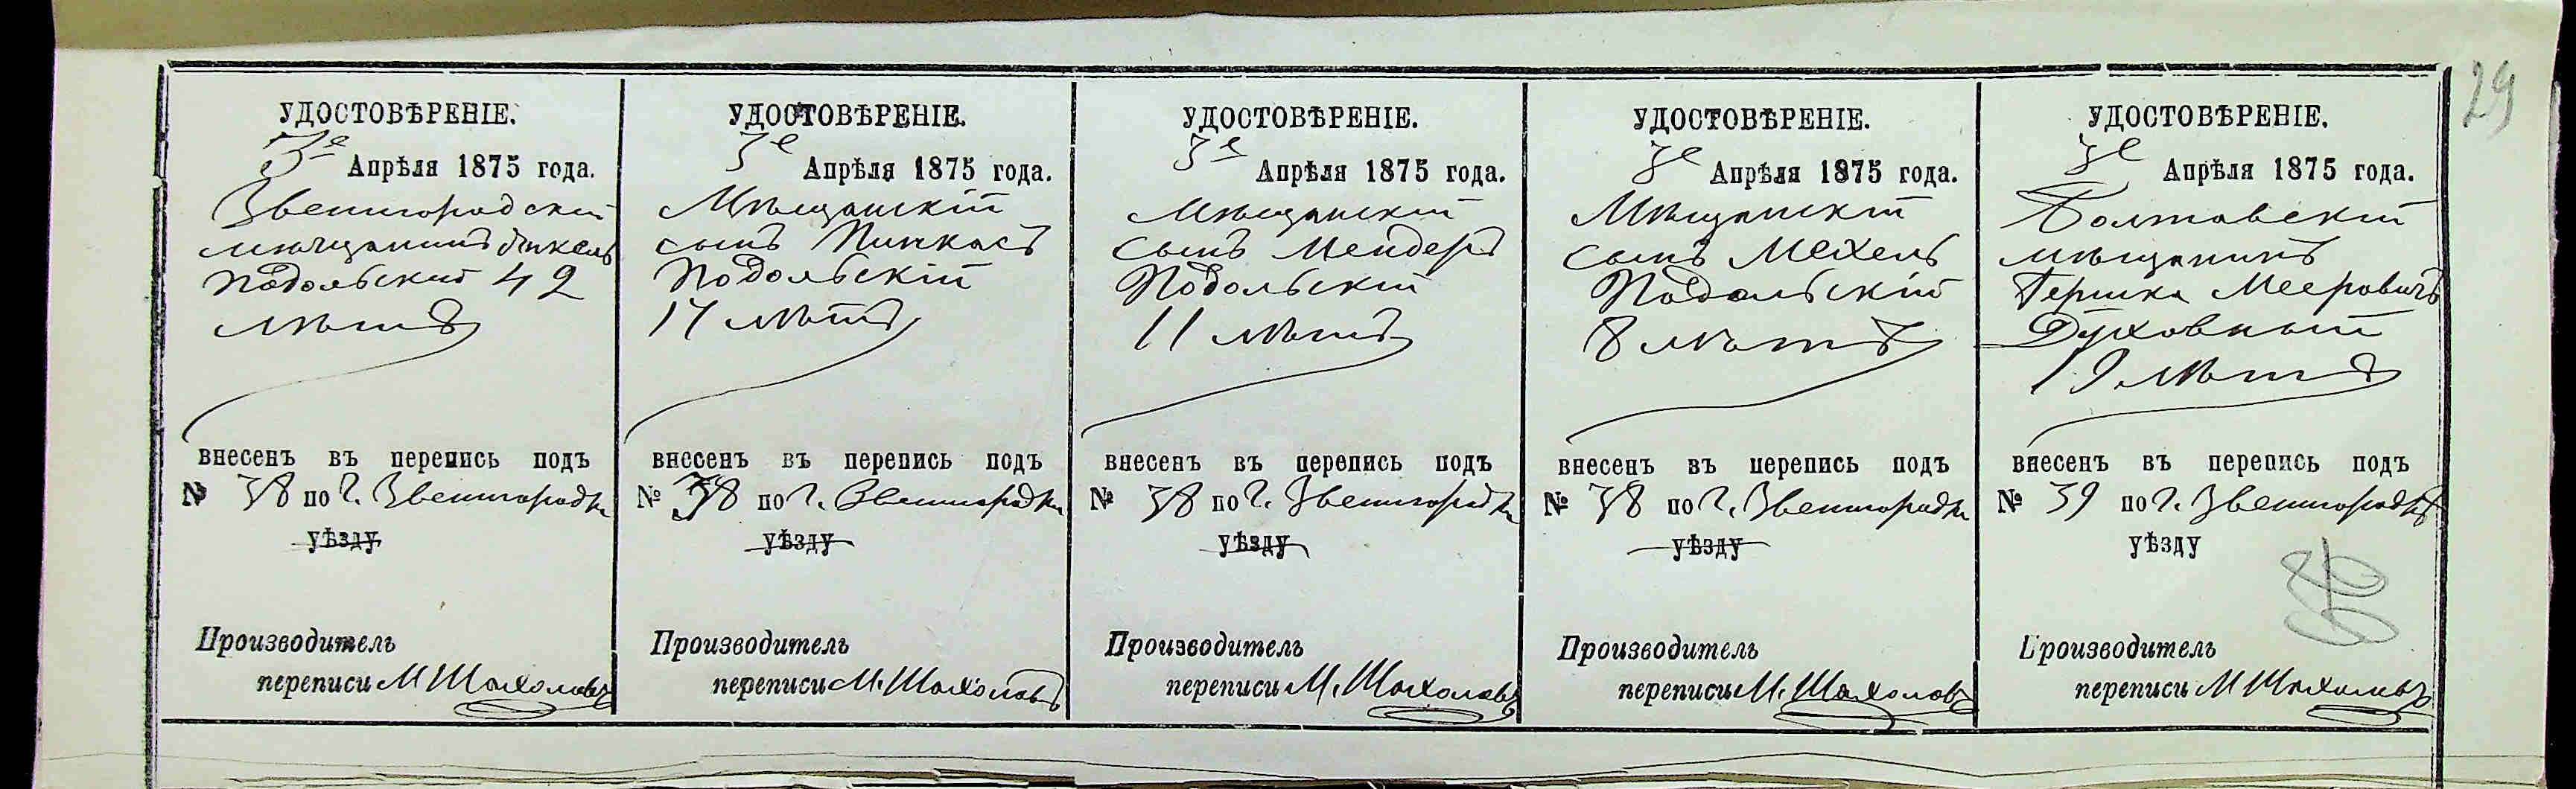 29
УДОСТОВѢРЕНІЕ.
3е Апрѣля 1875 года.
Звенигородскій
мѣщанинъ
Подольскій 42
лѣтъ
внесенъ въ перепись подъ
№ 38 по г. Звенигородкѣ
уѣзду
Производитель
переписи М Шахоловъ
УДОСТОВѢРЕНІЕ.
3е Апрѣля 1875 года.
Мѣщанскій
сынъ Пинкасъ
Подольскій
14 лѣтъ
внесенъ въ перепись подъ
№ 38 по г. Звенигородкѣ
уѣзду
Производитель
переписи М. Шахоловъ
УДОСТОВѢРЕНІЕ.
3е Апрѣля 1875 года.
Мѣщанскій
сынъ Мендеръ
Подольскій
11 лѣтъ
внесенъ въ перепись подъ
№ 38 по г. Звенигородкѣ
уѣзду
Производитель
переписи М. Шахоловъ
УДОСТОВѢРЕНІЕ.
3е Апрѣля 1875 года.
Мѣщанскій
сынъ Мехель
Подольскій
8 лѣтъ
внесенъ въ перепись подъ
№ 38 по г. Звенигородкѣ
уѣзду
Производитель
переписи М. Шахоловъ
УДОСТОВѢРЕНІЕ.
3е Апрѣля 1875 года.
Полтавскій
мѣщанинъ
Гершка Мееровичъ
Духовный
19 лѣтъ
внесенъ въ перепись подъ
№ 39 по г. Звенигородкѣ
уѣзду
Производитель
переписи М Шахоловъ